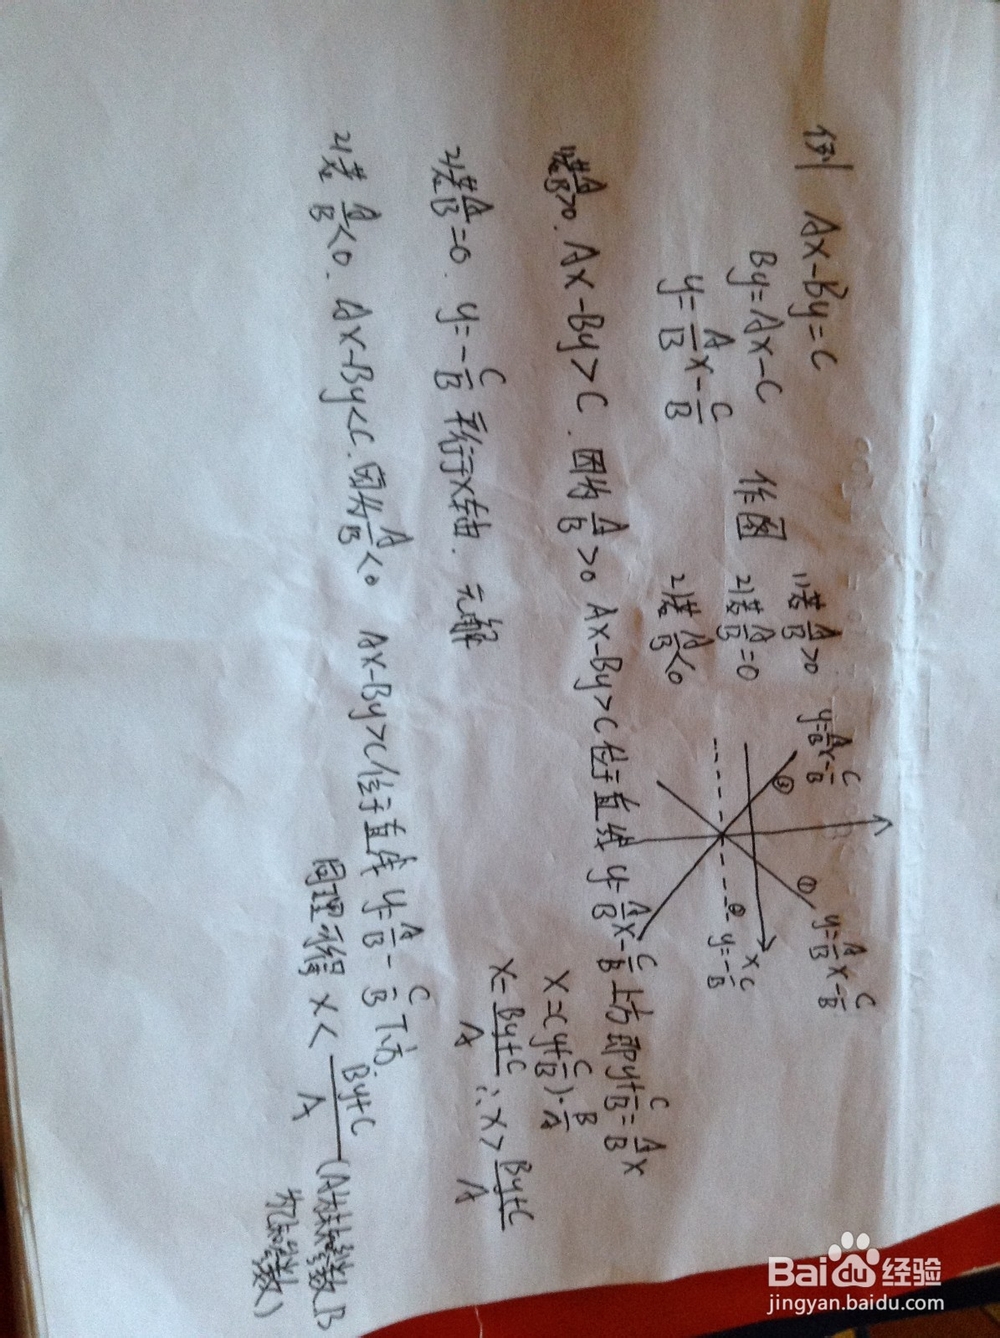 例 Ax-By=C
By=Ax-C 作图
y=A/B x-C/B
1)若A/B>0
2)若A/B=0
2)若A/B<0
y=A/B x-C/B
③
①
y=A/B x-C/B
x
② y=-C/B
1)若A/B>0. Ax-By>C. 因为A/B>0 Ax-By>C位于直线y=A/B x-C/B上方即y+C/B=A/B x
x=(y+C/B)·B/A
x=By+C/A ∴x>By+C/A
2)若A/B=0. y=-C/B平行于x轴. 无解
2)若A/B<0. Ax-By<C. 因为A/B<0 Ax-By>C位于直线y=A/B-C/B下方.
同理可得 x<By+C/A (A为未知常数,B
为已知常数)
Baidu经验
jingyan.baidu.com